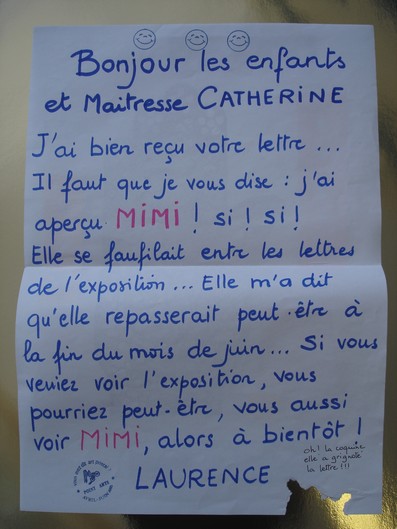 Bonjour les enfants
et Maitresse CATHERINE
J'ai bien reçu votre lettre...
Il faut que je vous dise : j'ai
aperçu MiMi ! si ! si !
Elle se faufilait entre les lettres
de l'exposition... Elle m'a dit
qu'elle repasserait peut-être à
la fin du mois de juin... Si vous
veniez voir l'exposition, vous
pourriez peut-être, vous aussi
voir MiMi, alors à bientôt !
oh! la coquine
elle a grignoté
la lettre !!!
LAURENCE